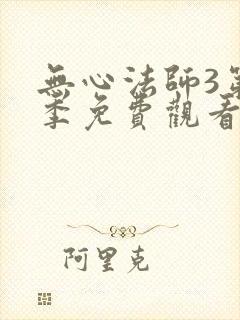 無心法師3第
季免費觀看
阿里克